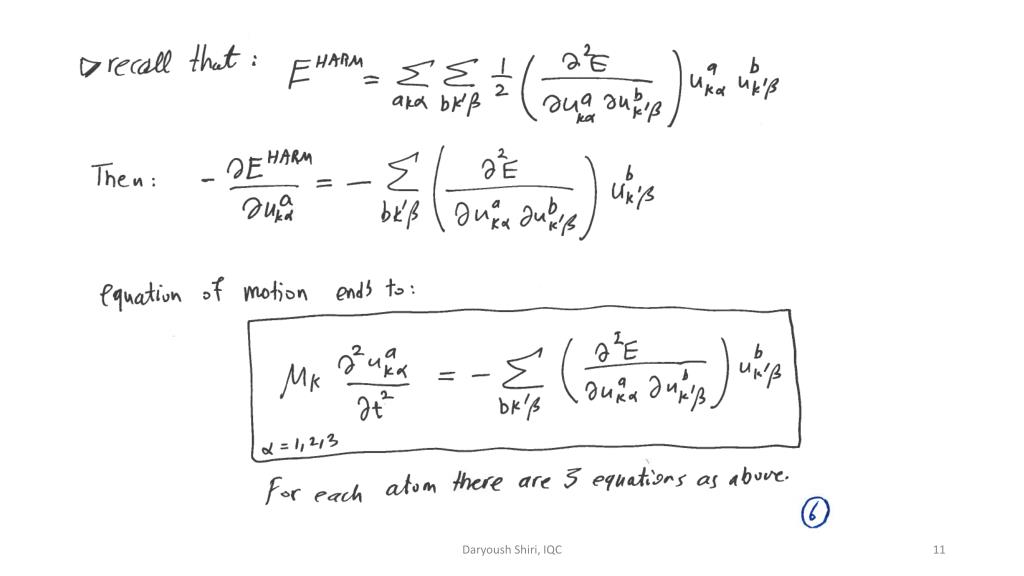 ▷ recall that : E^HARM = Σ_{aκα} Σ_{bκ'β} 1/2 (∂²E / ∂u^a_{κα} ∂u^b_{κ'β}) u^a_{κα} u^b_{κ'β}
Then : - ∂E^HARM / ∂u^a_{κα} = - Σ_{bκ'β} (∂²E / ∂u^a_{κα} ∂u^b_{κ'β}) u^b_{κ'β}
equation of motion ends to :
M_κ ∂²u^a_{κα} / ∂t² = - Σ_{bκ'β} (∂²E / ∂u^a_{κα} ∂u^b_{κ'β}) u^b_{κ'β}
α = 1,2,3
For each atom there are 3 equations as above.
6
Daryoush Shiri, IQC 11